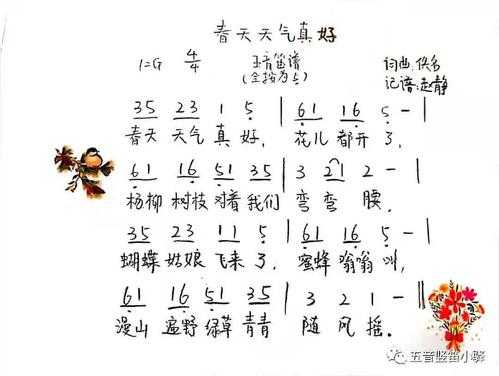 春天天气真好
1=G 4/4 五音笛谱 词曲:佚名
(全按为5) 记谱:赵静
35 23 1 5 | 61 16 5 - |
春天 天气 真 好, 花儿 都开 了,
61 16 51 35 | 3 21 2 - |
杨柳 树枝 对着 我们 弯 弯 腰,
35 23 11 5 | 61 16 5 - |
蝴蝶 姑娘 飞来 了, 蜜蜂 嗡嗡 叫,
61 16 51 35 | 3 2 1 - ||
漫山 遍野 绿草 青青 随 风 摇.
五音竖笛小驿